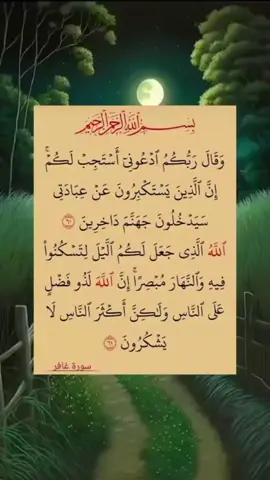 بِسْمِ ٱللَّهِ ٱلرَّحْمَٰنِ ٱلرَّحِيمِ
وَقَالَ رَبُّكُمُ ٱدْعُونِىٓ أَسْتَجِبْ لَكُمْ ۚ
إِنَّ ٱلَّذِينَ يَسْتَكْبِرُونَ عَنْ عِبَادَتِى
سَيَدْخُلُونَ جَهَنَّمَ دَاخِرِينَ ٦٠
ٱللَّهُ ٱلَّذِى جَعَلَ لَكُمُ ٱلَّيْلَ لِتَسْكُنُوا۟
فِيهِ وَٱلنَّهَارَ مُبْصِرًا ۚ إِنَّ ٱللَّهَ لَذُو فَضْلٍ
عَلَى ٱلنَّاسِ وَلَٰكِنَّ أَكْثَرَ ٱلنَّاسِ لَا
يَشْكُرُونَ ٦١
سورة غافر